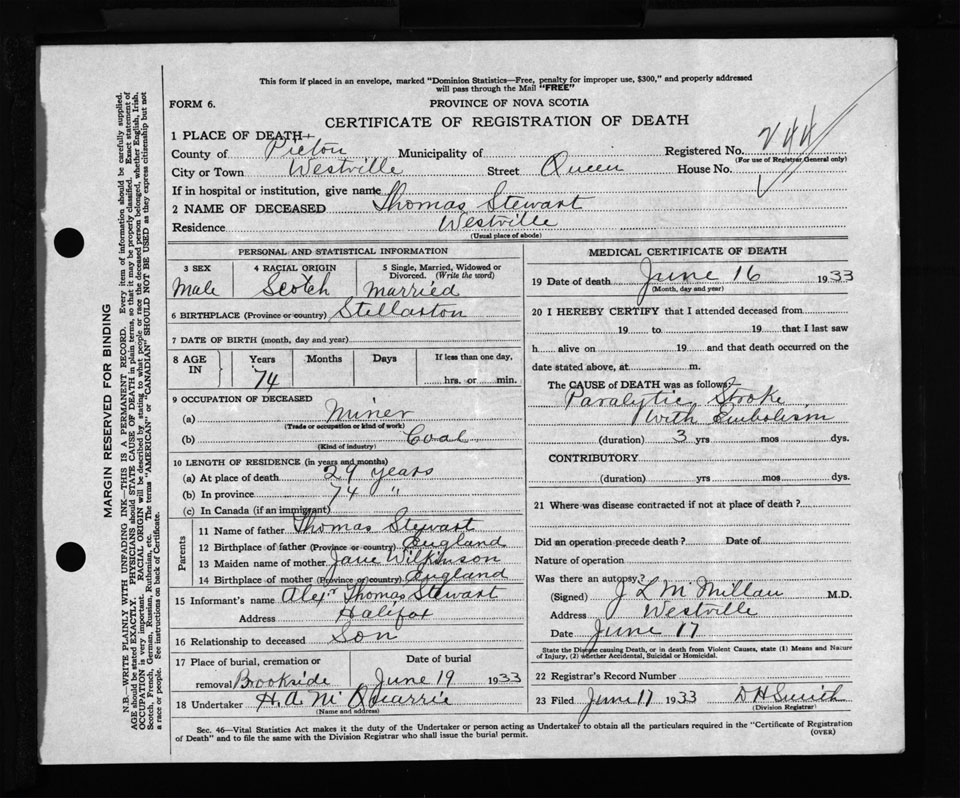 This form if placed in an envelope, marked "Dominion Statistics—Free, penalty for improper use, $300," and properly addressed
will pass through the Mail "FREE"
FORM 6.
PROVINCE OF NOVA SCOTIA
CERTIFICATE OF REGISTRATION OF DEATH
1 PLACE OF DEATH
County of Pictou Municipality of Registered No. 744
(For use of Registrar General only)
City or Town Westville Street Queen House No.
If in hospital or institution, give name
2 NAME OF DECEASED Thomas Stewart
Residence Westville
(Usual place of abode)
PERSONAL AND STATISTICAL INFORMATION
3 SEX 4 RACIAL ORIGIN 5 Single, Married, Widowed or
Divorced. (Write the word)
Male Scotch Married
6 BIRTHPLACE (Province or country) Stellarton
7 DATE OF BIRTH (month, day and year)
8 AGE IN Years Months Days If less than one day,
74 hrs. or min.
9 OCCUPATION OF DECEASED
(a) Miner
(Trade or occupation or kind of work)
(b) Coal
(Kind of industry)
10 LENGTH OF RESIDENCE (in years and months)
(a) At place of death 29 years
(b) In province 74 "
(c) In Canada (if an immigrant)
Parents
11 Name of father Thomas Stewart
12 Birthplace of father (Province or country) England
13 Maiden name of mother Jane Wilkinson
14 Birthplace of mother (Province or country) England
15 Informant's name Alexr Thomas Stewart
Address Halifax
16 Relationship to deceased Son
17 Place of burial, cremation or Date of burial
removal Brookside June 19 1933
18 Undertaker H. A. McQuarrie
(Name and address)
MEDICAL CERTIFICATE OF DEATH
19 Date of death June 16 1933
(Month, day and year)
20 I HEREBY CERTIFY that I attended deceased from
19 to 19 that I last saw
h alive on 19 and that death occurred on the
date stated above, at m.
The CAUSE of DEATH was as follows
Paralytic Stroke
With Embolism
(duration) 3 yrs mos dys.
CONTRIBUTORY
(duration) yrs mos dys.
21 Where was disease contracted if not at place of death?
Did an operation precede death? Date of
Nature of operation
Was there an autopsy?
(Signed) J L McMillan M.D.
Address Westville
Date June 17
State the Disease causing Death, or in death from Violent Causes, state (1) Means and Nature
of Injury, (2) whether Accidental, Suicidal or Homicidal.
22 Registrar's Record Number
23 Filed June 17 1933 D H Smith
(Division Registrar)
Sec. 46—Vital Statistics Act makes it the duty of the Undertaker or person acting as Undertaker to obtain all the particulars required in the "Certificate of Registration
of Death" and to file the same with the Division Registrar who shall issue the burial permit.
(OVER)
MARGIN RESERVED FOR BINDING
N.B.—WRITE PLAINLY WITH UNFADING INK—THIS IS A PERMANENT RECORD. Every item of information should be carefully supplied.
AGE should be stated EXACTLY. PHYSICIANS should STATE CAUSE OF DEATH in plain terms, so that it may be properly classified. Exact statement of
OCCUPATION is very important. RACIAL ORIGIN will be described by stating to what people or race the deceased person belonged, whether English, Irish,
Scotch, French, German, Russian, Ruthenian, etc. The terms "AMERICAN" or "CANADIAN" SHOULD NOT BE USED as they express citizenship but not
a race or people. See instructions on back of Certificate.